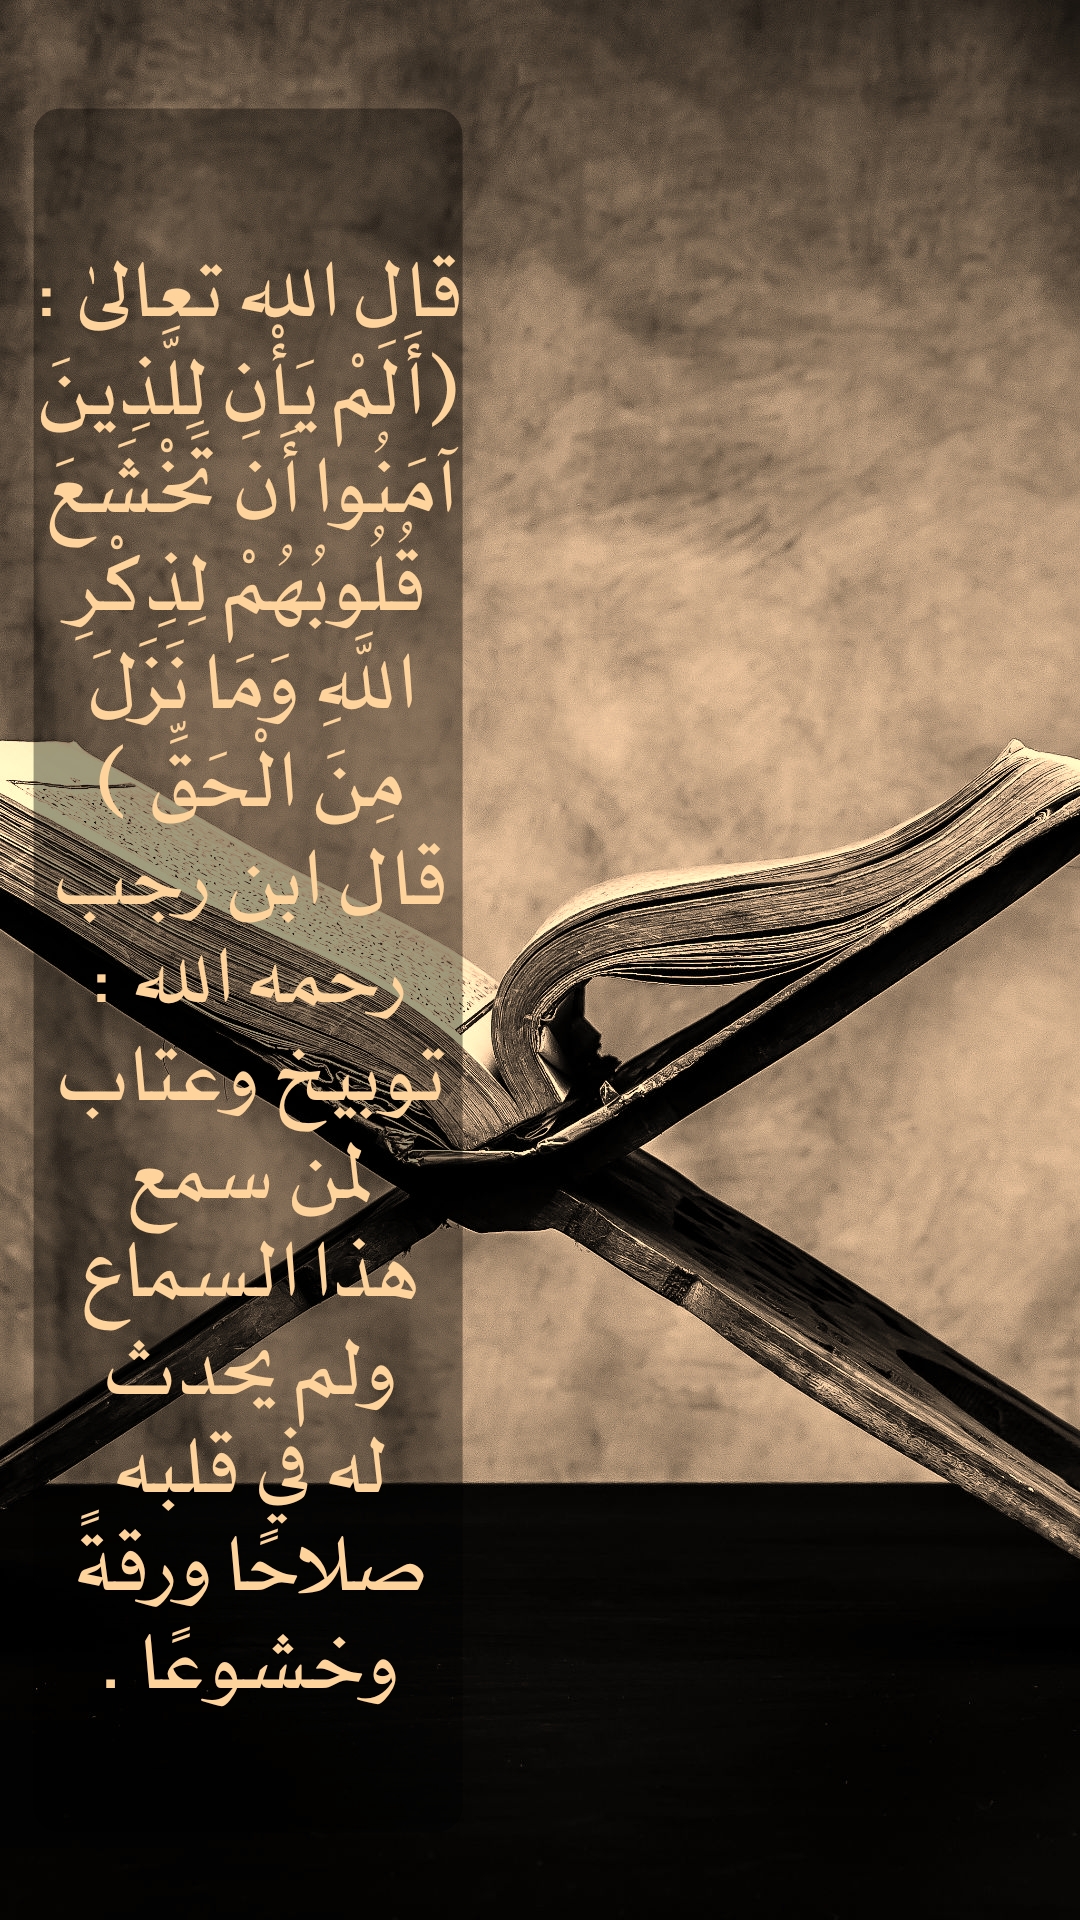 قال الله تعالىٰ :
(أَلَمْ يَأْنِ لِلَّذِينَ
آمَنُوا أَن تَخْشَعَ
قُلُوبُهُمْ لِذِكْرِ
اللَّهِ وَمَا نَزَلَ
مِنَ الْحَقِّ )
قال ابن رجب
رحمه الله :
توبيخ وعتاب
لمن سمع
هذا السماع
ولم يحدث
له في قلبه
صلاحًا ورقةً
وخشوعًا .